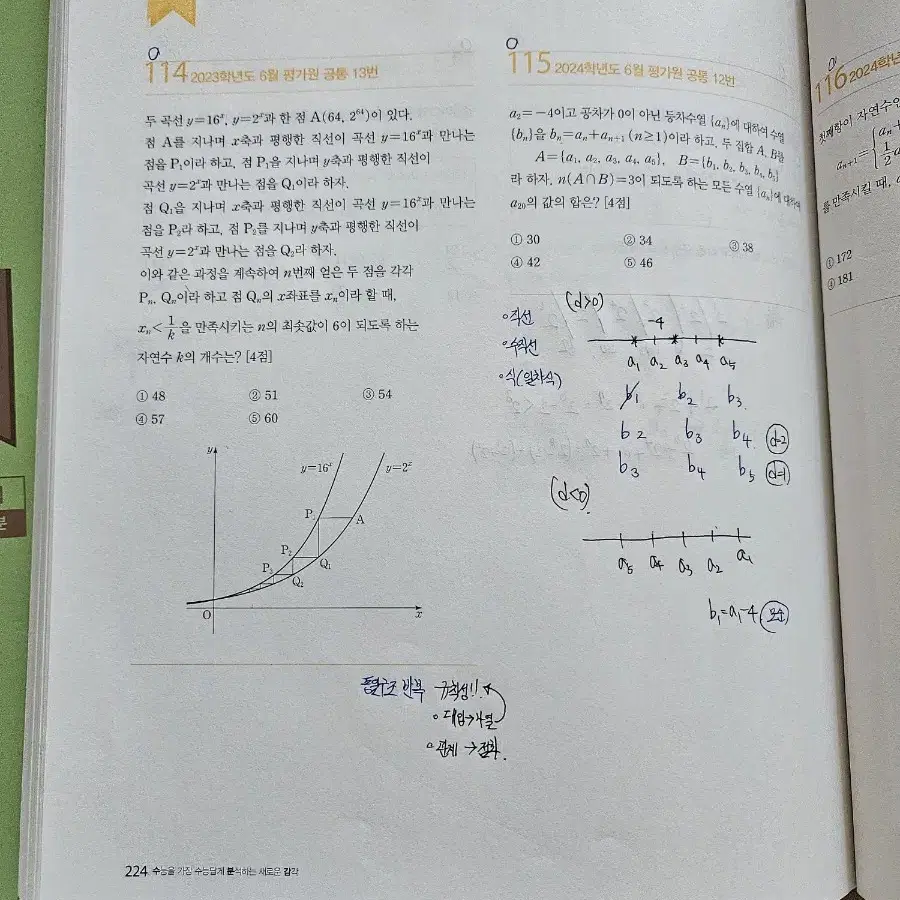 114 2023학년도 6월 평가원 공통 13번
두 곡선 y=16ˣ, y=2ˣ과 한 점 A(64, 2⁶⁴)이 있다.
점 A를 지나며 x축과 평행한 직선이 곡선 y=16ˣ과 만나는
점을 P₁이라 하고, 점 P₁을 지나며 y축과 평행한 직선이
곡선 y=2ˣ과 만나는 점을 Q₁이라 하자.
점 Q₁을 지나며 x축과 평행한 직선이 곡선 y=16ˣ과 만나는
점을 P₂라 하고, 점 P₂를 지나며 y축과 평행한 직선이
곡선 y=2ˣ과 만나는 점을 Q₂라 하자.
이와 같은 과정을 계속하여 n번째 얻은 두 점을 각각
Pₙ, Qₙ이라 하고 점 Qₙ의 x좌표를 xₙ이라 할 때,
xₙ<1/k을 만족시키는 n의 최솟값이 6이 되도록 하는
자연수 k의 개수는? [4점]
① 48 ② 51 ③ 54
④ 57 ⑤ 60
y
y=16ˣ y=2ˣ
P₁ A
P₂ Q₁
P₃ Q₂
O x
규칙성!!
대입→나열
관계 →점화
224 수능을 가장 수능답게 분석하는 새로운 감각
115 2024학년도 6월 평가원 공통 12번
a₂=−4이고 공차가 0이 아닌 등차수열 {aₙ}에 대하여 수열
{bₙ}을 bₙ=aₙ+aₙ₊₁ (n≥1)이라 하고, 두 집합 A, B를
A={a₁, a₂, a₃, a₄, a₅}, B={b₁, b₂, b₃, b₄, b₅}
라 하자. n(A∩B)=3이 되도록 하는 모든 수열 {aₙ}에 대하여
a₂₀의 값의 합은? [4점]
① 30 ② 34 ③ 38
④ 42 ⑤ 46
(d>0)
직선 -4
수직선
a₁ a₂ a₃ a₄ a₅
식(일차식)
b₁ b₂ b₃
b₂ b₃ b₄ d=2
b₃ b₄ b₅ d=1
(d<0)
a₅ a₄ a₃ a₂ a₁
b₁=a₁-4 모순
116 2024학년
첫째항이 자연수인
aₙ₊₁= aₙ+
1/2 a
를 만족시킬 때, a
① 172
④ 181